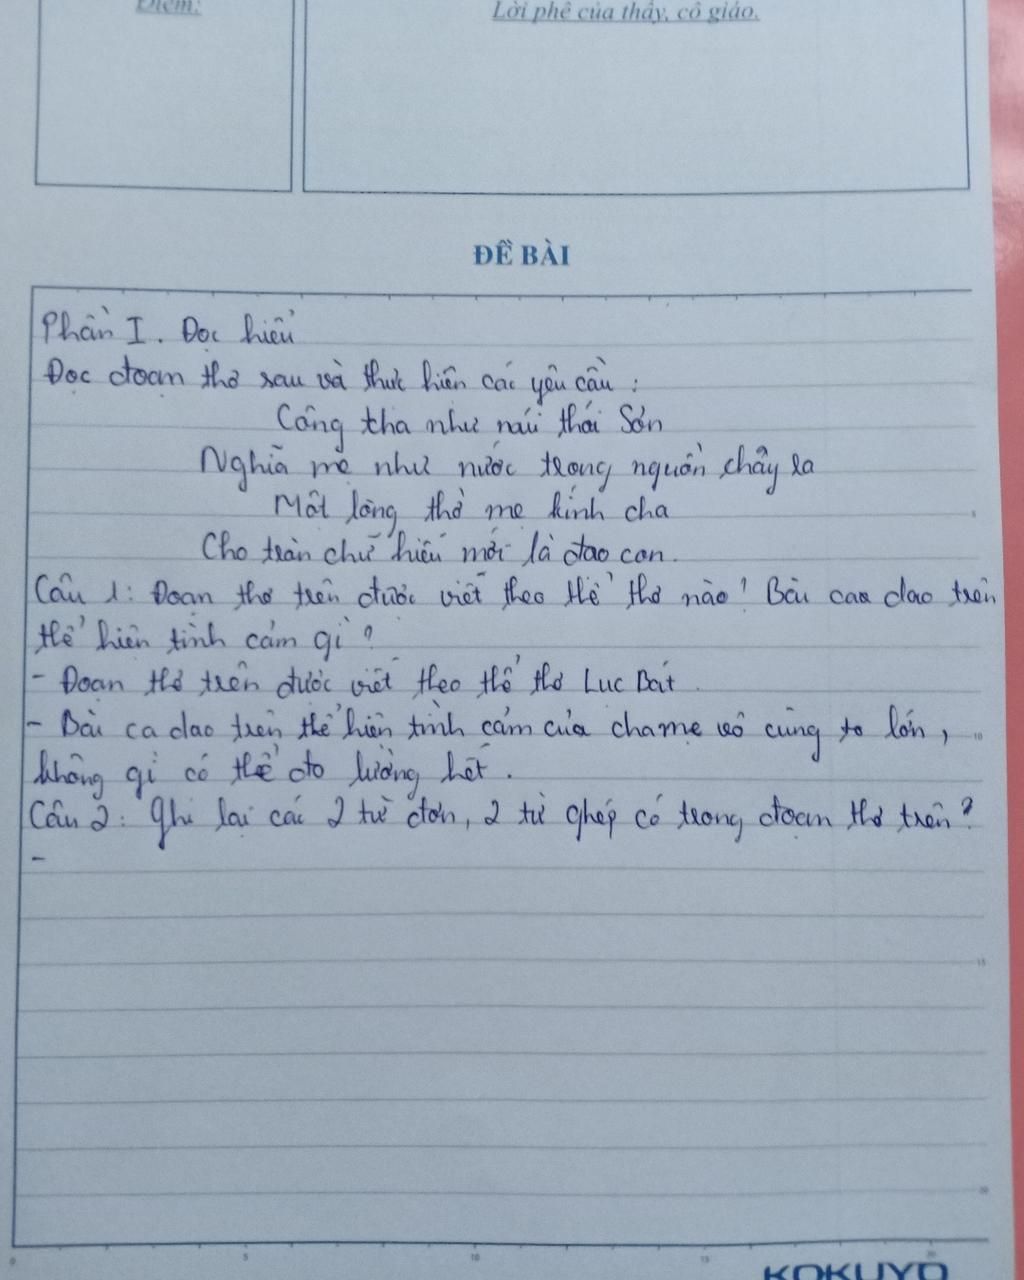 Điểm:
Lời phê của thầy, cô giáo.
ĐỀ BÀI
Phần I. Đọc hiểu
Đọc đoạn thơ sau và thực hiện các yêu cầu :
Công tha như núi thái Sơn
Nghĩa mẹ như nước trong nguồn chảy ra
Một lòng thờ mẹ kính cha
Cho tròn chữ hiếu mới là đạo con.
Câu 1: Đoạn thơ trên được viết theo thể thơ nào? Bài cao dao trên
thể hiện tình cảm gì?
- Đoạn thơ trên được viết theo thể thơ Lục Bát.
- Bài ca dao trên thể hiện tình cảm của cha mẹ vô cùng to lớn,
không gì có thể đo lường hết.
Câu 2: Ghi lại các 2 từ đơn, 2 từ ghép có trong đoạn thơ trên?
-
5
10
15
20
0
5
10
15
20
KOKUYO